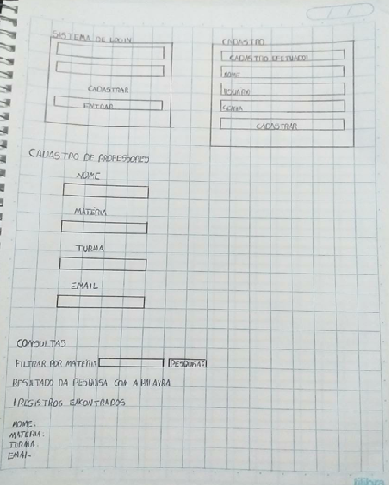 SISTEMA DE LOGIN
CADASTRAR
ENTRAR
CADASTRO
NOME
USUARIO
SENHA
CADASTRAR
CADASTRO DE PROFESSORES
NOME
MATERIA
TURMA
EMAIL
CONSULTAS
FILTRAR POR MATERIA
RESULTADO DA PESQUISA COM
REGISTROS ENCONTRADOS
NOME:
MATERIA:
TURMA:
EMAIL